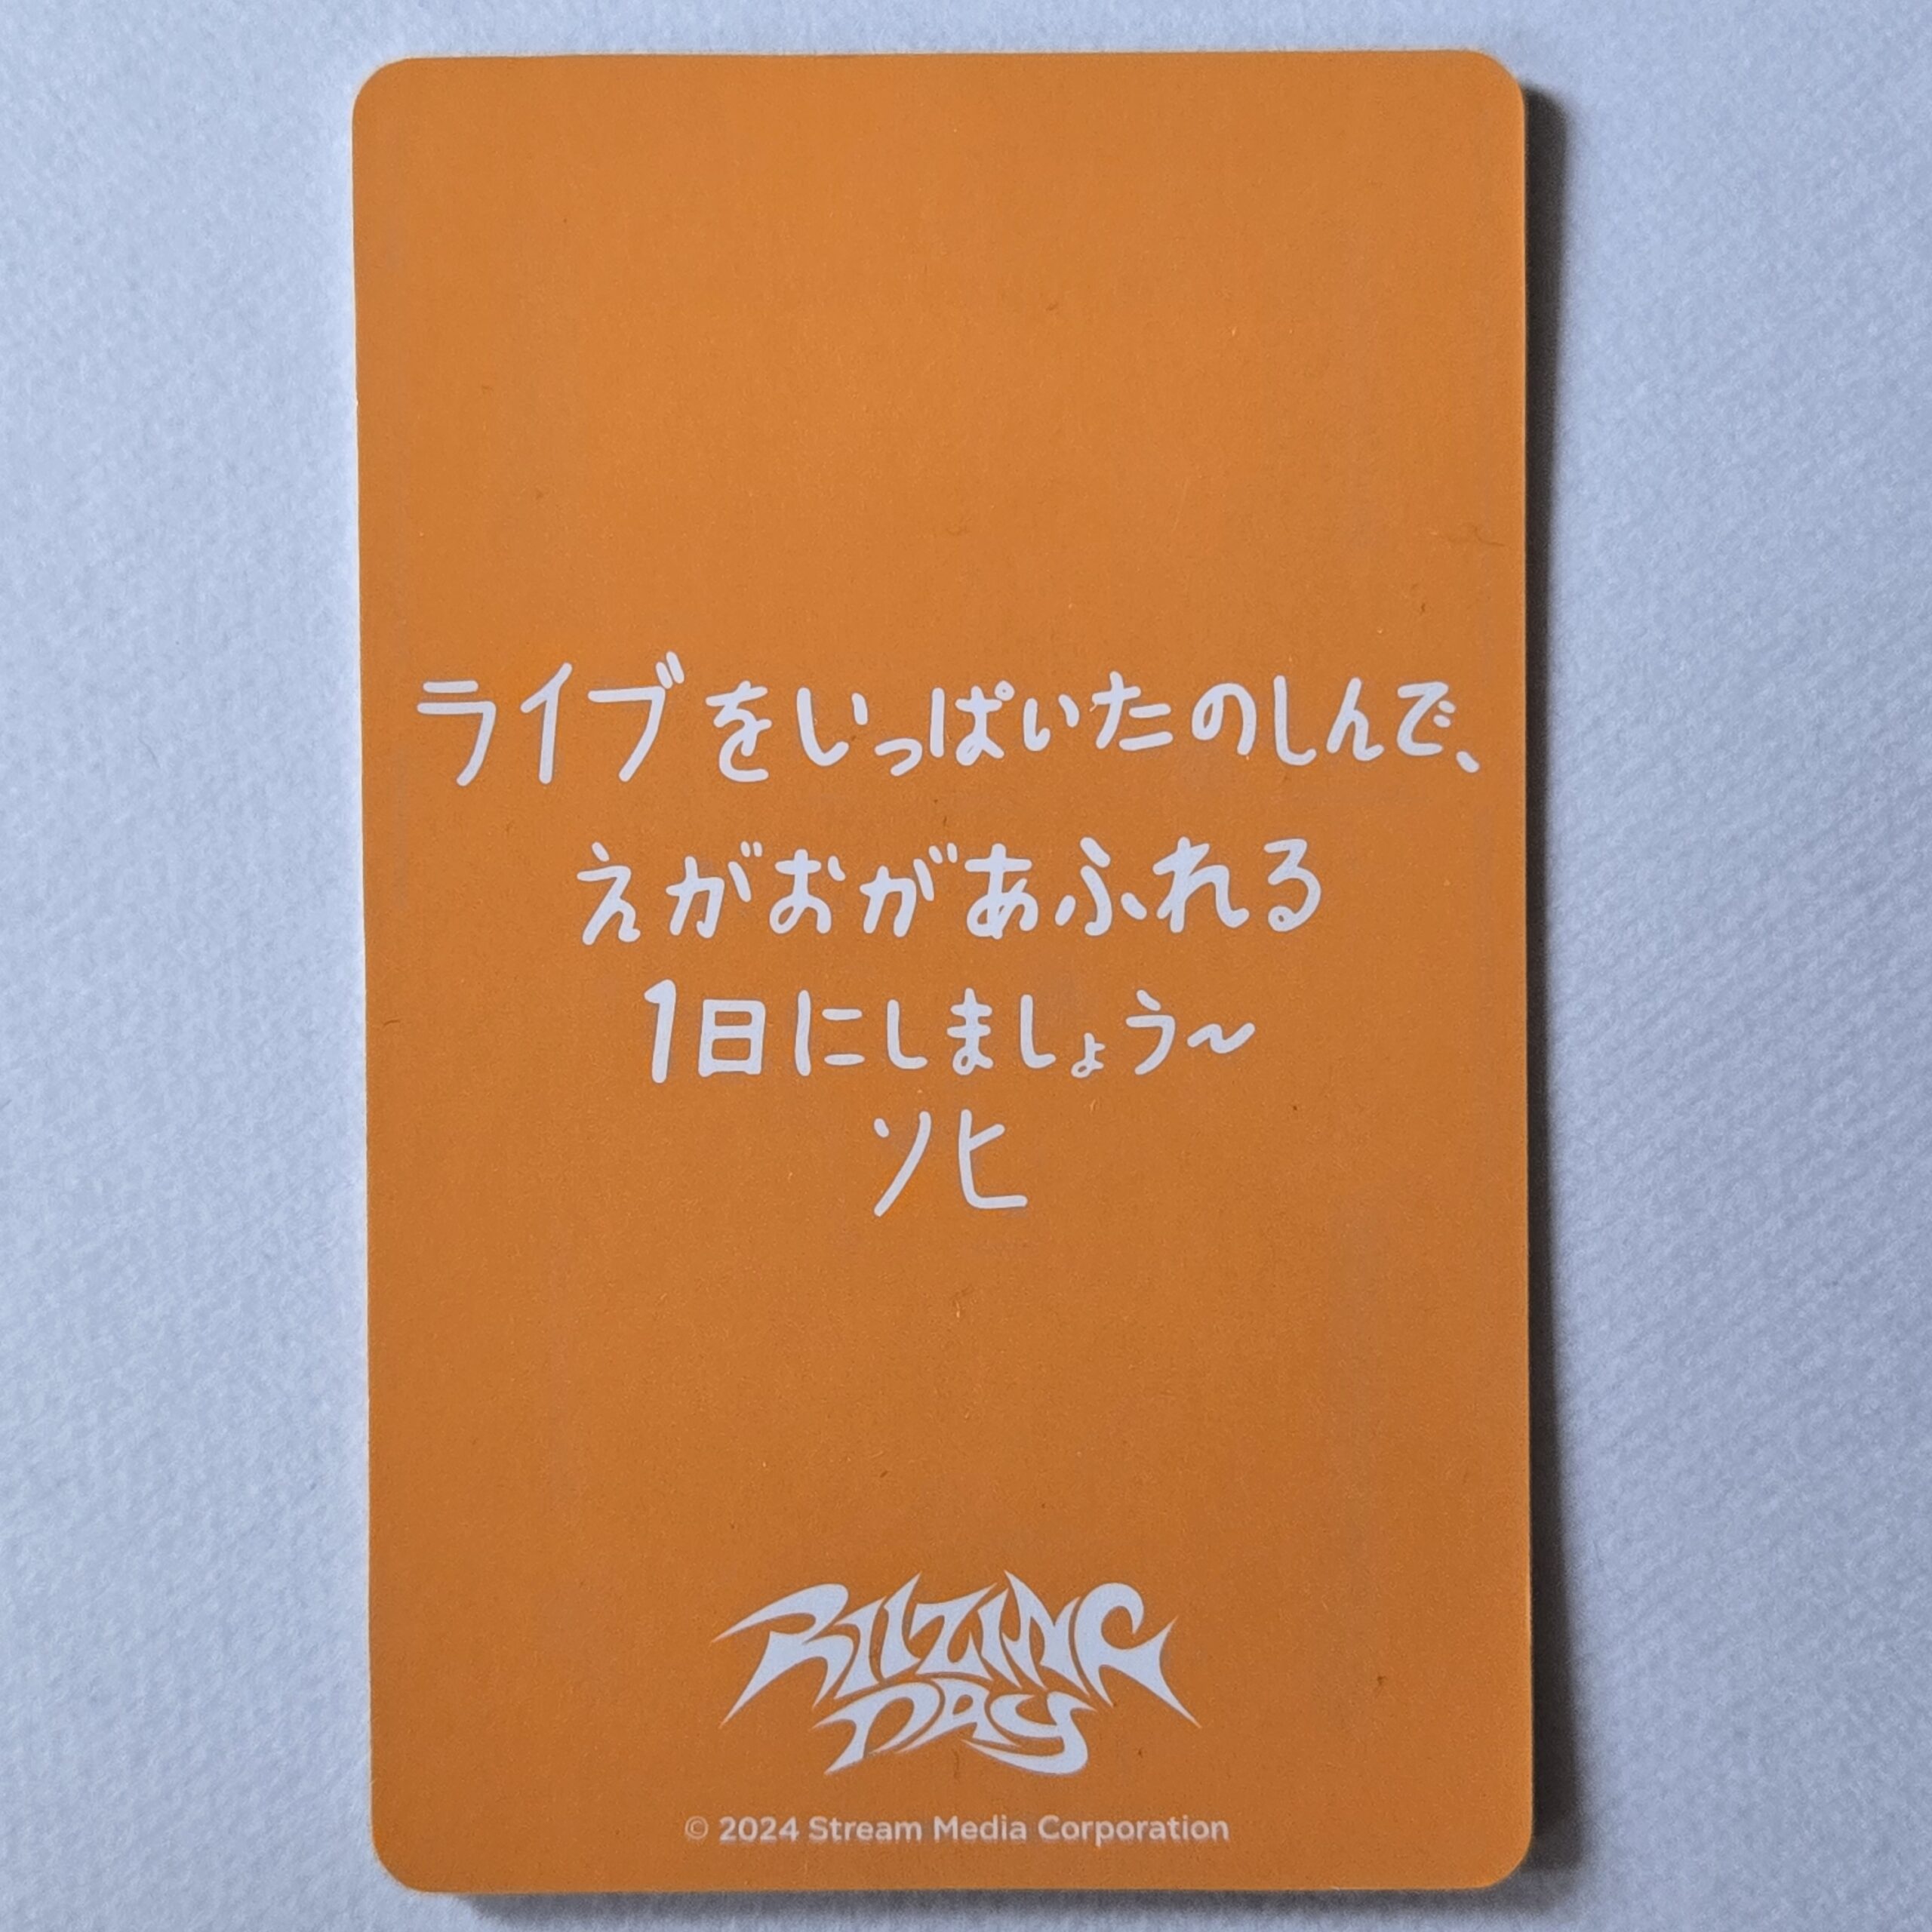 ライブをいっぱいたのしんで、
えがおがあふれる
1日にしましょう~
ソヒ
RIIZING
DAY
© 2024 Stream Media Corporation